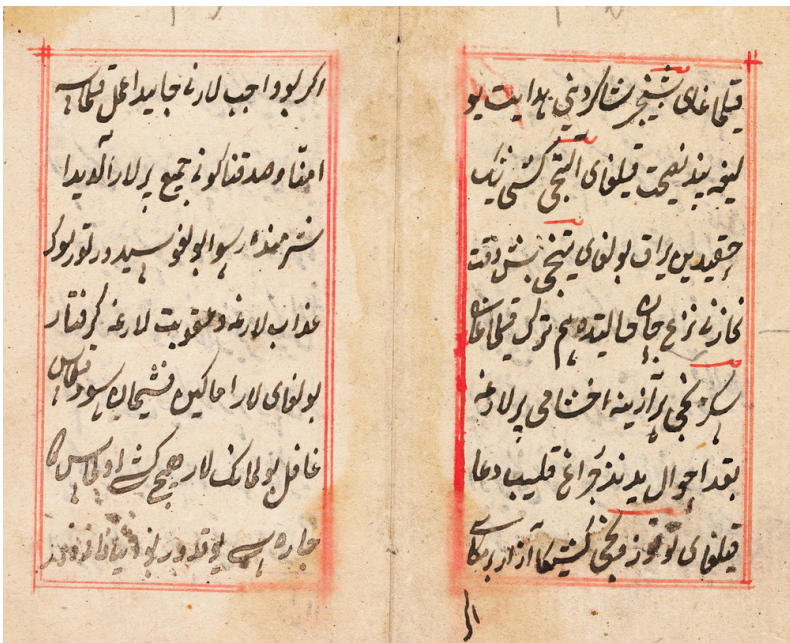 قیلماغای بیشنجی شاکردنی هدایت یو
لیغه پند نصیحت قیلغای التنجی کشی نینک
حقیدین یراق بولغای یتنجی بش وقت
نمازنی نزع جان حالیتده هم ترک قیلماغای
سکزنجی هر آزینه اخشامی پرلارغه
بقدر احوال چراغ قلیب دعا
قیلغای توقوزنجی کشیکا آزار برمکای
اکر
اکر بو واجب لارنی جاییدا عمل قیلماسه
امنا وصدقنا کونی جمیع پرلار آلدیدا
شرمنده رسوا بولغوسیدور تورلوک
عذاب لارغه و عقوبت لارغه کرفتار
بولغای لار اما کین فشیمان سود قیلماس
غافل بولمانک لار هیچ کشی اولماس کا
چاره سی یوقدور بو دنیا